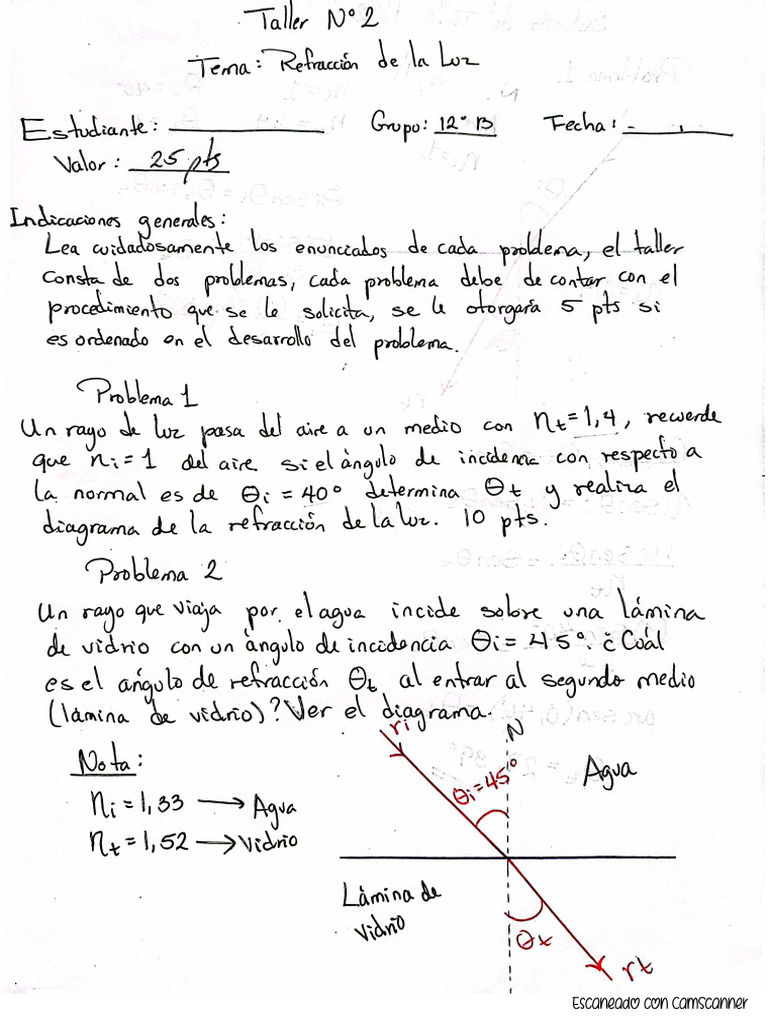 Taller N°2
Tema: Refracción de la Luz
Estudiante: ____________ Grupo: 12° B Fecha: ________
Valor: 25 pts
Indicaciones generales:
Lea cuidadosamente los enunciados de cada problema, el taller
consta de dos problemas, cada problema debe de contar con el
procedimiento que se le solicita, se le otorgaría 5 pts si
es ordenado en el desarrollo del problema.
Problema 1
Un rayo de luz pasa del aire a un medio con nt=1,4, recuerde
que ni=1 del aire si el ángulo de incidencia con respecto a
la normal es de θi = 40° determina θt y realiza el
diagrama de la refracción de la luz. 10 pts.
Problema 2
Un rayo que viaja por el agua incide sobre una lámina
de vidrio con un ángulo de incidencia θi = 45°. ¿Cuál
es el ángulo de refracción θt al entrar al segundo medio
(lámina de vidrio)? Ver el diagrama.
Nota:
ni = 1,33 → Agua
nt = 1,52 → Vidrio
ri
N
θi=45°
Agua
Lámina de
vidrio
θt
rt
Escaneado con CamScanner